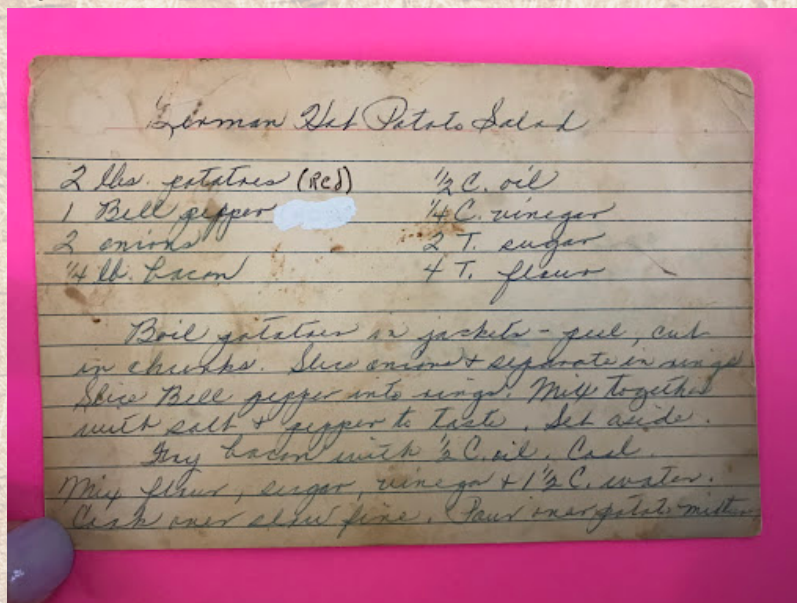 German Hot Potato Salad
2 lbs. potatoes (Red) ½ C. oil
1 Bell pepper ¼ C. vinegar
2 onions 2 T. sugar
¼ lb. bacon 4 T. flour
Boil potatoes in jackets - peel, cut
in chunks. Slice onions + separate in rings
Slice Bell pepper into rings. Mix together
with salt + pepper to taste. Set aside.
Fry bacon with ½ C. oil. Cool.
Mix flour, sugar, vinegar + 1½ C. water.
Cook over slow fire. Pour over potato